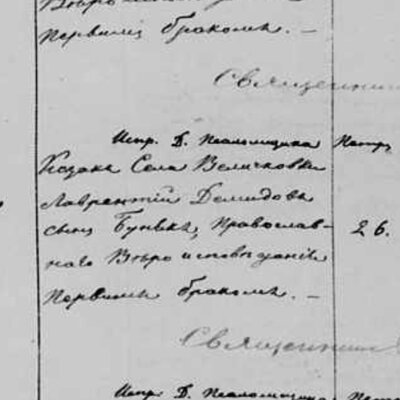 Вѣро
первымъ бракомъ. —
Священникъ
Испр. Д. Псаломщика Петръ
Козакъ Села Величковки
Лаврентій Демидовъ
сынъ Бунька, Православ- 26.
наго Вѣроисповѣданія
первымъ бракомъ. —
Священникъ
Испр. Д. Псаломщика Петръ